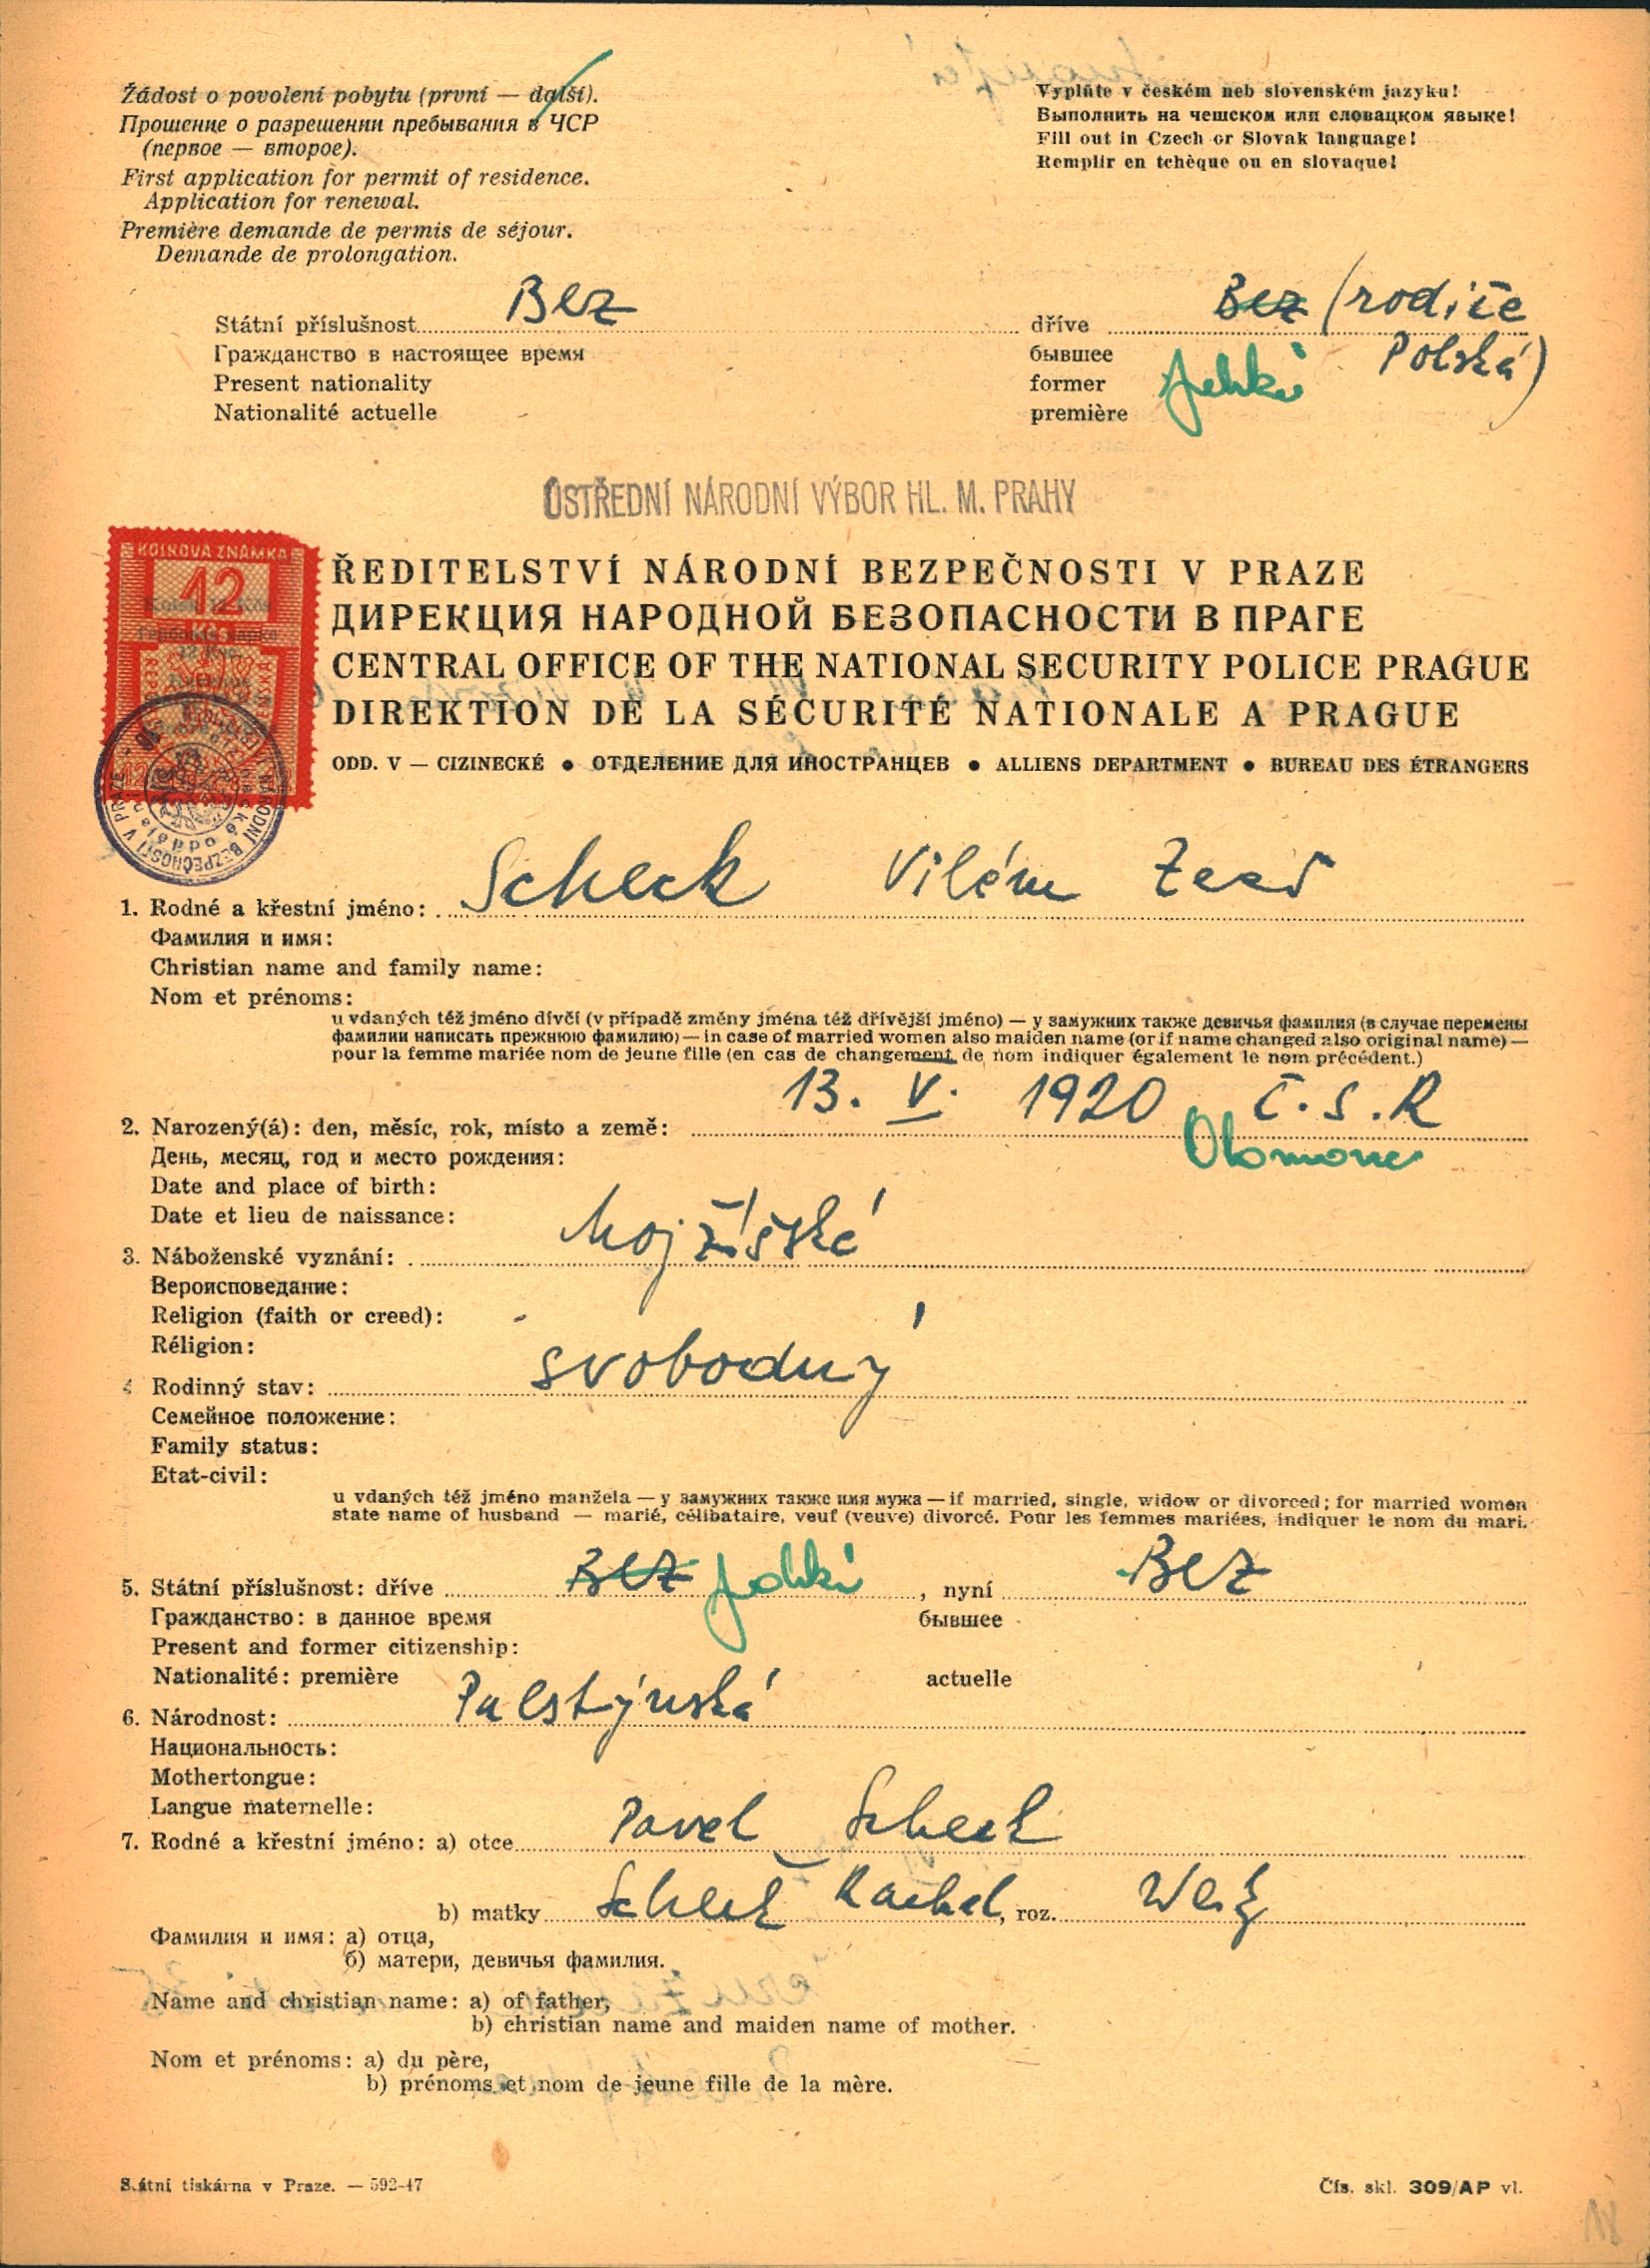 Žádost o povolení pobytu (první — další).
Прошение о разрешении пребывания в ЧСР
(первое — второе).
First application for permit of residence.
Application for renewal.
Première demande de permis de séjour.
Demande de prolongation.
Vyplňte v českém neb slovenském jazyku!
Выполнить на чешском или словацком языке!
Fill out in Czech or Slovak language!
Remplir en tchèque ou en slovaque!
Státní příslušnost Bez dříve Bez (rodiče
Гражданство в настоящее время бывшее Polská)
Present nationality former
Nationalité actuelle première
ÚSTŘEDNÍ NÁRODNÍ VÝBOR HL. M. PRAHY
KOLKOVÁ ZNÁMKA
12
Kčs
ŘEDITELSTVÍ NÁRODNÍ BEZPEČNOSTI V PRAZE
ДИРЕКЦИЯ НАРОДНОЙ БЕЗОПАСНОСТИ В ПРАГЕ
CENTRAL OFFICE OF THE NATIONAL SECURITY POLICE PRAGUE
DIREKTION DE LA SÉCURITÉ NATIONALE A PRAGUE
ODD. V — CIZINECKÉ ● ОТДЕЛЕНИЕ ДЛЯ ИНОСТРАНЦЕВ ● ALLIENS DEPARTMENT ● BUREAU DES ÉTRANGERS
NÁRODNÍ BEZPEČNOSTI V PRAZE
1. Rodné a křestní jméno: Scheck Vilém
Фамилия и имя:
Christian name and family name:
Nom et prénoms:
u vdaných též jméno dívčí (v případě změny jména též dřívější jméno) — у замужних также девичья фамилия (в случае перемены
фамилии написать прежнюю фамилию) — in case of married women also maiden name (or if name changed also original name) —
pour la femme mariée nom de jeune fille (en cas de changement de nom indiquer également le nom précédent.)
2. Narozený(á): den, měsíc, rok, místo a země: 13. V. 1920 Č.S.R
Olomouc
День, месяц, год и место рождения:
Date and place of birth:
Date et lieu de naissance:
3. Náboženské vyznání: Mojžíšské
Вероисповедание:
Religion (faith or creed):
Réligion:
4 Rodinný stav: svobodný
Семейное положение:
Family status:
Etat-civil:
u vdaných též jméno manžela — у замужних также имя мужа — if married, single, widow or divorced; for married women
state name of husband — marié, célibataire, veuf (veuve) divorcé. Pour les femmes mariées, indiquer le nom du mari.
5. Státní příslušnost: dříve Bez , nyní Bez
Гражданство: в данное время бывшее
Present and former citizenship:
Nationalité: première actuelle
6. Národnost: Palestýnská
Национальность:
Mothertongue:
Langue maternelle:
7. Rodné a křestní jméno: a) otce Pavel Scheck
b) matky Scheck Rachel, roz.
Фамилия и имя: а) отца,
б) матери, девичья фамилия.
Name and christian name: a) of father,
b) christian name and maiden name of mother.
Nom et prénoms: a) du père,
b) prénoms et nom de jeune fille de la mère.
Státní tiskárna v Praze. — 592-47
Čís. skl. 309/AP vl.